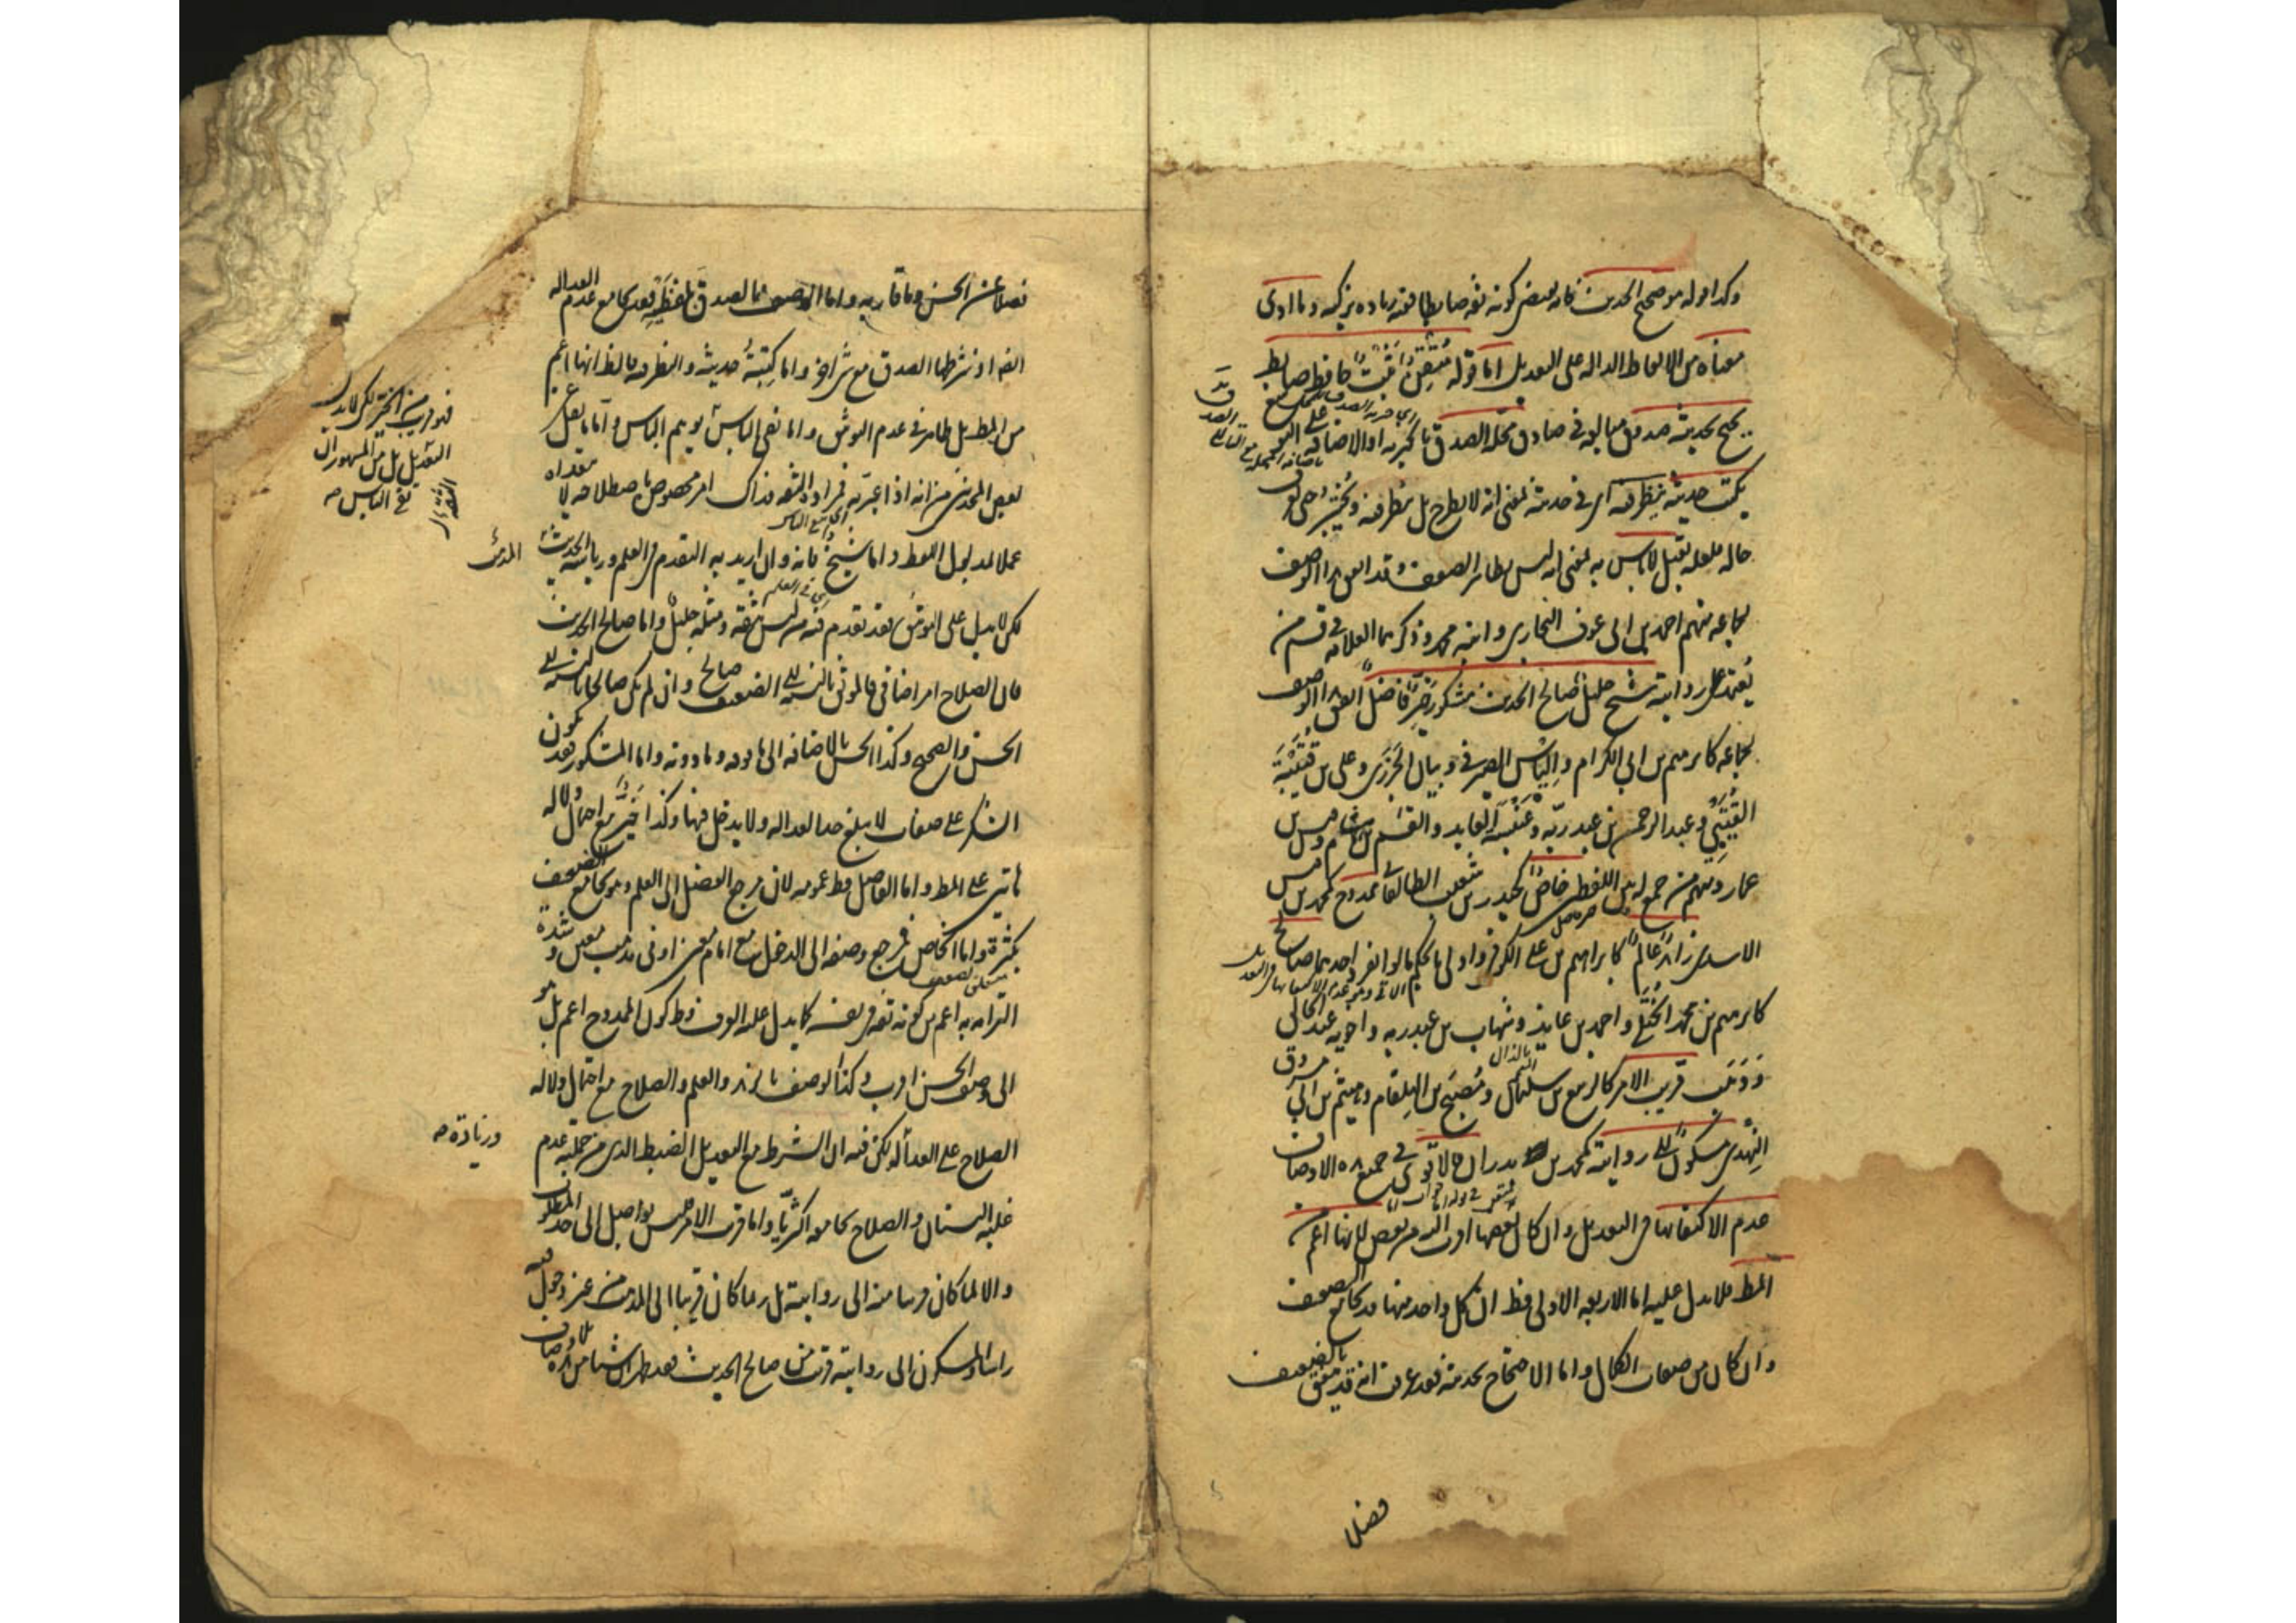 وكذا قوله هو صحيح الحديث فانه يقتضي كونه ثقة ضابطا ففيه زيادة تزكيه وما ادى
معناه من الالفاظ الداله على التعديل اما قوله متقن ثبت حافظ ضابط
يحتج بحديثه صدوق مبالغة في صادق محله الصدق
يكتب حديثه ينظر فيه اى في حديثه بمعنى انه لا يطرح بل ينظر فيه ويختبر حتى يعرف
حاله فلعله يقبل لا باس به بمعنى انه ليس بظاهر الضعف وقد اتفق هذا الوصف
لجماعه منهم احمد بن ابى عوف البخارى وابنه محمد وذكرهما العلامه في قسم من
يعتمد على روايته شيخ جليل صالح الحديث مشكور خيّر فاضل اتفق هذا الوصف
لجماعه كابرهيم بن ابي الكرام والياس الصيرفي وبيان الجزرى وعلى بن قتيبة
القتيبي وعبد الرحمن بن عبد ربه وعنبسة العابد والقسم بن هشام وقيس بن
عمار ومنهم من جمع له بين اللفظين خاص كحيدر بن شعيب الطالقاني ممدوح كمحمد بن قيس
الاسدى زاهد عالم كابراهيم بن على الكوفى واولى بالحكم ما لو انفرد احدهما صالح
كابرهيم بن محمد الختلي واحمد بن عايذ وشهاب بن عبد ربه واخويه عبد الخالق
ووهب قريب الامر كالربيع بن سليمان ومصبح بن الهلقام وهيثم بن ابي مسروق
النهدى مسكون الى روايته كمحمد بن بدران فالاقوى في جميع هذه الاوصاف
عدم الاكتفا بها فى التعديل وان كان بعضها اقرب اليه من بعض لانها اعم من
المط فلا تدل عليه اما الاربعه الاولى فظ ان كل واحد منها قد يجامع الضعف
وان كان من صفات الكمال واما الاحتجاج بحديثه فقد عرفت انه قد يتفق بالضعيف
فضلا
فضلا عن الحسن وما قاربه واما الوصف بالصدق بلفظيه فقد يجامع عدم العداله
ايضا اذ شرطها الصدق مع شئ اخر واما كتبة حديثه والنظر فيه فالظ انها اعم
من المط بل ظاهر في عدم التوثيق واما نفى الباس يوهم الباس واما ما نقل عن
بعض المحدثين من انه اذا عبر به فمراده الثقه فذاك امر مخصوص باصطلاحه لا يتعداه
عملا بمدلول اللفظ واما شيخ فانه وان اريد به التقدم فى العلم ورياسة الحديث
لكن لا يدل على التوثيق فقد تقدم فيه من ليس بثقة ومثله جليل واما صالح الحديث
فان الصلاح امر اضافى فالموثق بالنسبة الى الضعيف صالح وان لم يكن صالحا بالنسبة الى
الحسن والصحيح وكذا الحسن بالاضافه الى ما فوقه وما دونه واما المشكور فقد يكون
الشكر على صفات لا تبلغ حد العداله ولا يدخل فيها وكذا خيّر مع احتمال دلالة
هاتين على المط واما الفاضل فظ عمومه لان مرجع الفضل الى العلم وهو يجامع الضعف
بكثرة واما الخاص فمرجع وصفه الى الدخل مع امام معين او فى مذهب معين وشدة
التزامه به اعم من كونه ثقة فى نفسه كما يدل عليه العرف وظ كون الممدوح اعم بل هو
الى وصف الحسن اقرب وكذا الوصف بالزهد والعلم والصلاح مع احتمال دلالة
الصلاح على العدالة لكن فيه ان الشرط مع التعديل الضبط الذى من جملته عدم
غلبة النسيان والصلاح يجامعه اكثريا واما قريب الامر فليس بواصل الى حد المطلوب
والا لما كان قريبا منه الى روايته بل ربما كان قريبا الى المذهب من غير دخول فيه
راسا والمسكون الى روايته قريب من صالح الحديث فقد ظهر ان شيئا من هذه الاوصاف
المدعى
وزيادة صح